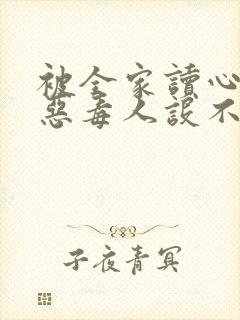 被全家讀心
惡毒人設不
子夜青冥